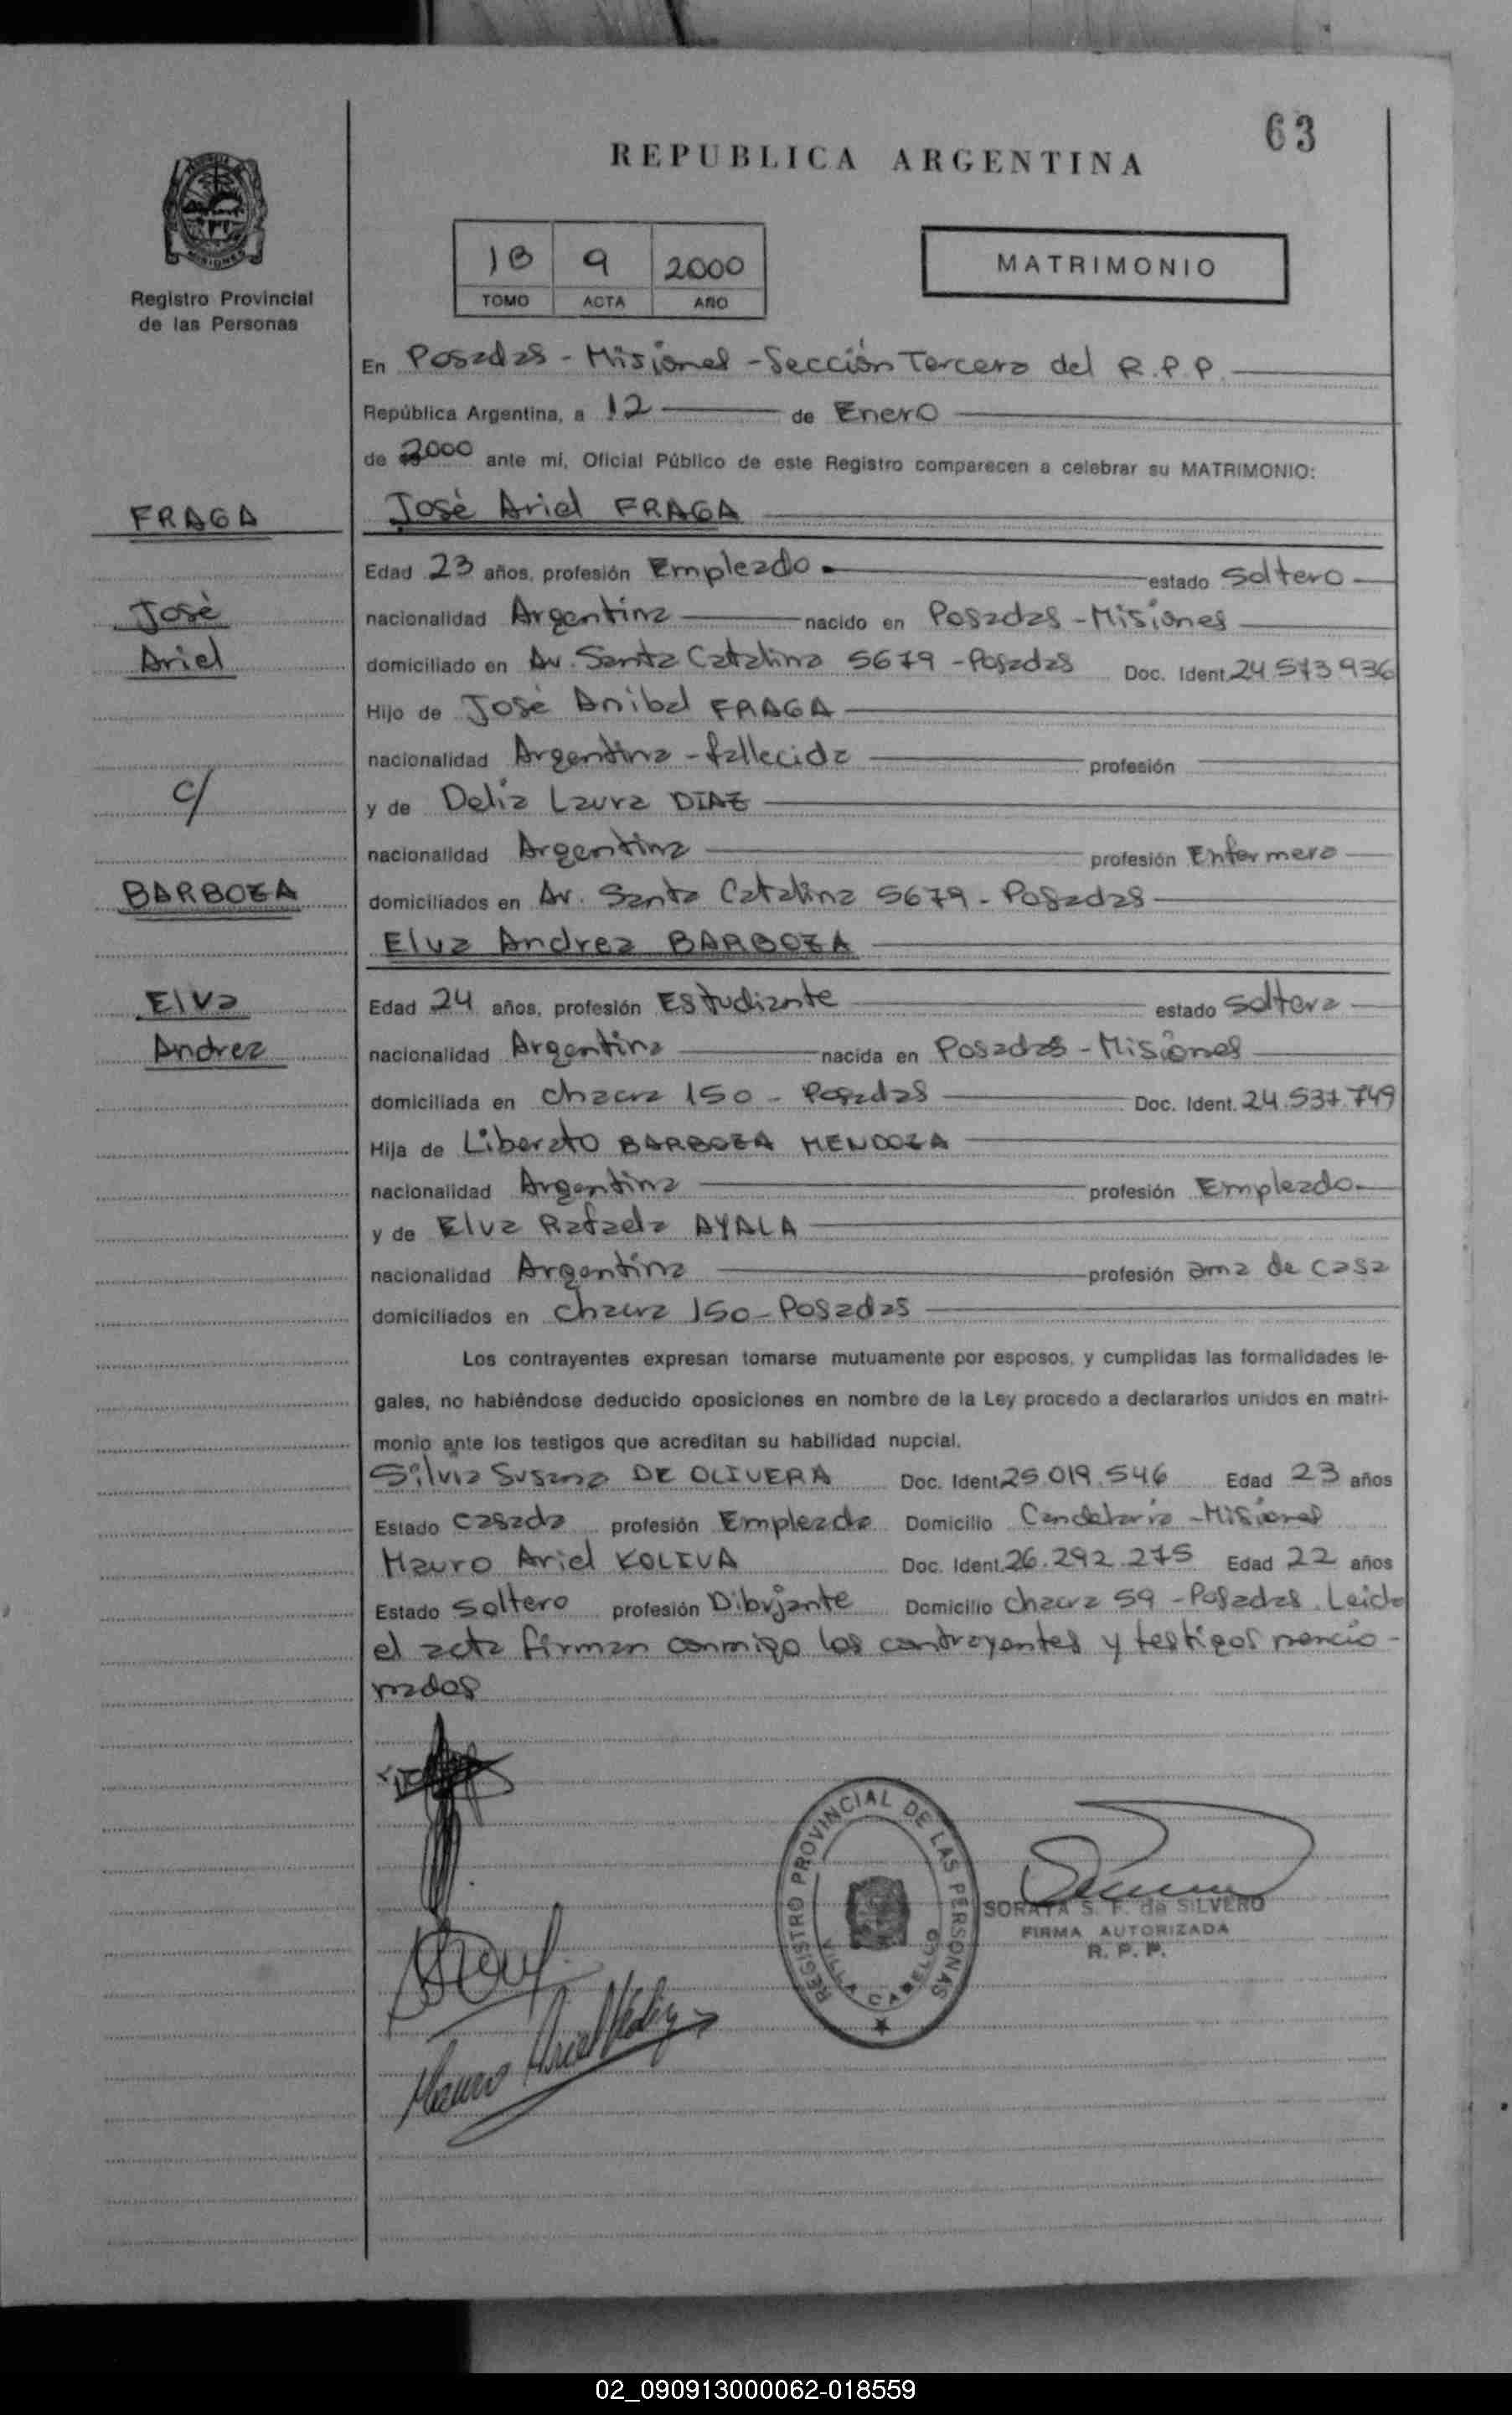 63
REPUBLICA ARGENTINA
1B 9 2000
TOMO ACTA AÑO
MATRIMONIO
MISIONES
Registro Provincial
de las Personas
En Posadas - Misiones - Sección Tercera del R.P.P.
República Argentina, a 12 de Enero
de 2000 ante mí, Oficial Público de este Registro comparecen a celebrar su MATRIMONIO:
FRAGA
José Ariel FRAGA
Edad 23 años, profesión Empleado estado Soltero
José
nacionalidad Argentina nacido en Posadas - Misiones
Ariel
domiciliado en Av. Santa Catalina 5679 - Posadas Doc. Ident. 24.573.936
Hijo de José Anibal FRAGA
nacionalidad Argentina - fallecida profesión
c/
y de Delia Laura DIAZ
nacionalidad Argentina profesión Enfermera
BARBOZA
domiciliados en Av. Santa Catalina 5679 - Posadas
Elva Andrea BARBOZA
Elva
Edad 24 años, profesión Estudiante estado Soltera
Andrea
nacionalidad Argentina nacida en Posadas - Misiones
domiciliada en Chacra 150 - Posadas Doc. Ident. 24.537.749
Hija de Liberato BARBOZA MENDOZA
nacionalidad Argentina profesión Empleado
y de Elva Rafaela AYALA
nacionalidad Argentina profesión ama de casa
domiciliados en Chacra 150 - Posadas
Los contrayentes expresan tomarse mutuamente por esposos, y cumplidas las formalidades le-
gales, no habiéndose deducido oposiciones en nombre de la Ley procedo a declararlos unidos en matri-
monio ante los testigos que acreditan su habilidad nupcial.
Silvia Susana DE OLIVERA Doc. Ident. 25.019.546 Edad 23 años
Estado Casada profesión Empleada Domicilio Candelaria - Misiones
Mauro Ariel KOLIVA Doc. Ident. 26.292.275 Edad 22 años
Estado Soltero profesión Dibujante Domicilio Chacra 59 - Posadas. Leida
el acta firman conmigo los contrayentes y testigos mencio-
nados
REGISTRO PROVINCIAL DE LAS PERSONAS
VILLA CABELLO
S. F. de SILVERO
FIRMA AUTORIZADA
R. P. P.
Mauro Ariel
02_090913000062-018559